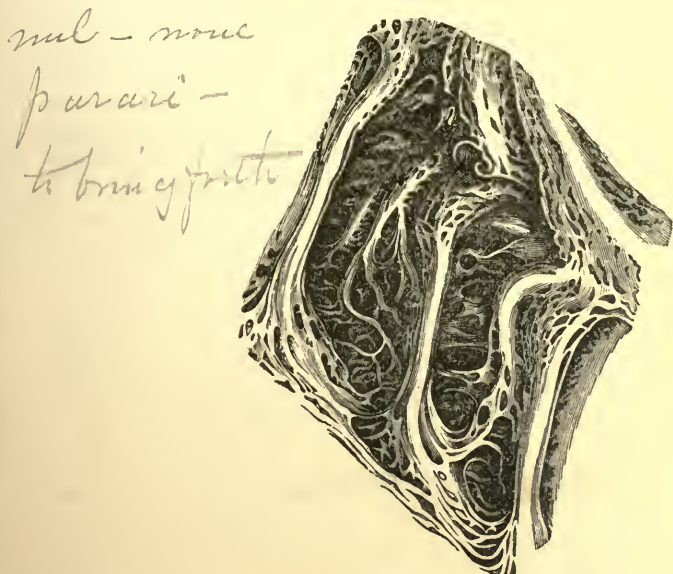 nul - none
parari -
to bring forth